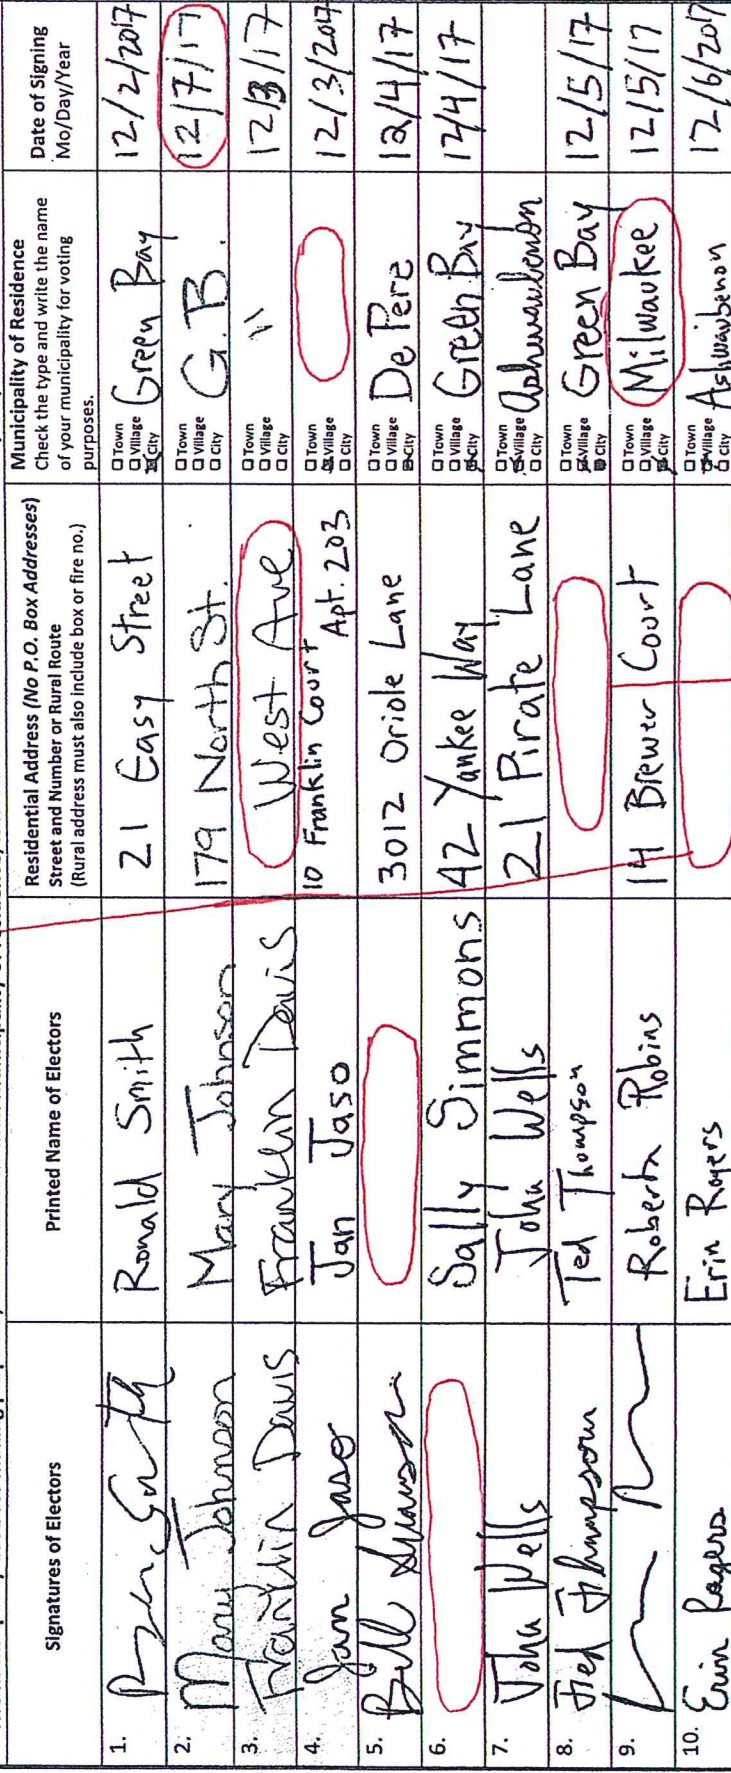 Signatures of Electors
Printed Name of Electors
Residential Address (No P.O. Box Addresses)
Street and Number or Rural Route
(Rural address must also include box or fire no.)
Municipality of Residence
Check the type and write the name
of your municipality for voting
purposes.
Date of Signing
Mo/Day/Year
1.
Ronald Smith
21 Easy Street
Town
Village
City
Green Bay
12/2/2017
2.
Mary Johnson
Mary Johnson
179 North St.
Town
Village
City
G.B.
12/7/17
3.
Franklin Davis
Franklin Davis
West Ave
Town
Village
City
"
12/3/17
4.
Jan Jaso
Jan Jaso
10 Franklin Court
Apt. 203
Town
Village
City
12/3/2017
5.
Bill
3012 Oriole Lane
Town
Village
City
De Pere
12/4/17
6.
Sally Simmons
42 Yankee Way
Town
Village
City
Green Bay
12/4/17
7.
John Wells
John Wells
21 Pirate Lane
Town
Village
City
Ashwaubenon
8.
Ted Thompson
Ted Thompson
Town
Village
City
Green Bay
12/5/17
9.
Roberta Robins
14 Brewer Court
Town
Village
City
Milwaukee
12/5/17
10.
Erin Rogers
Erin Rogers
Town
Village
City
Ashwaubenon
12/6/2017